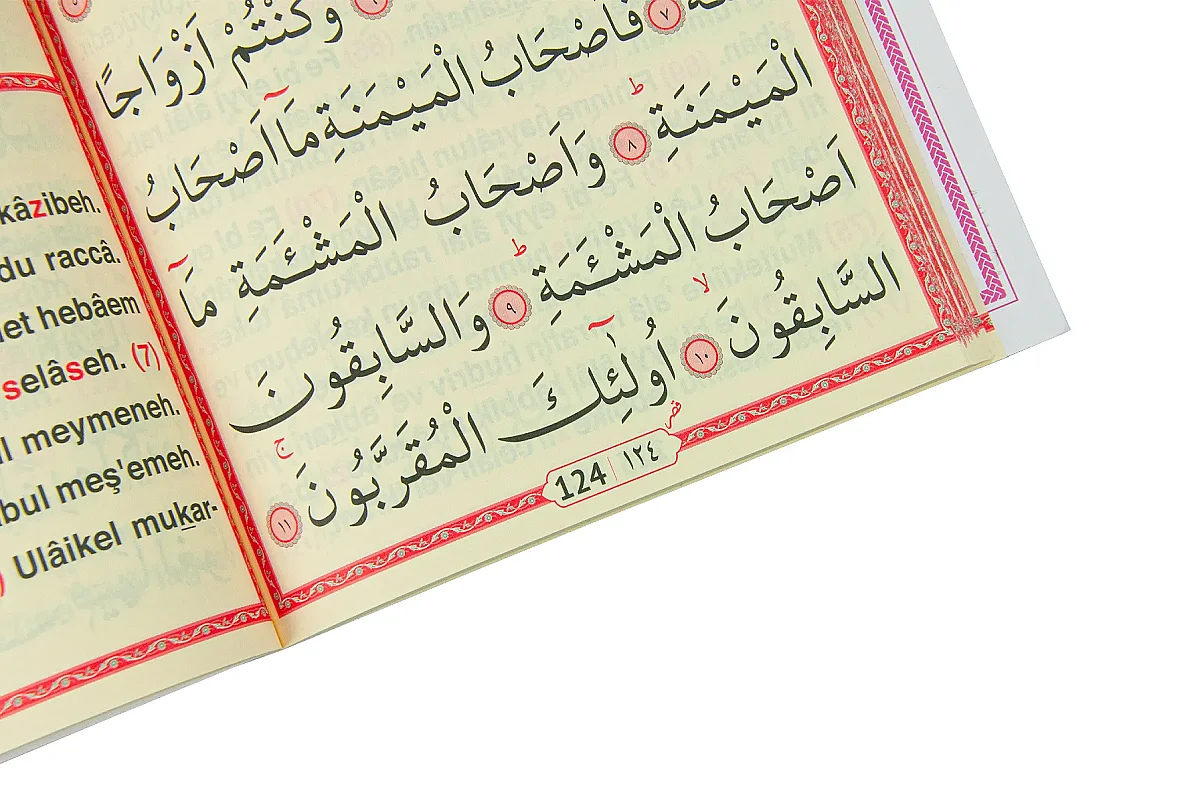 وَكُنْتُمْ اَزْوَاجًا
٧ فَاَصْحَابُ الْمَيْمَنَةِ مَٓا اَصْحَابُ
الْمَيْمَنَةِۜ ٨ وَاَصْحَابُ الْمَشْـَٔمَةِ مَٓا
اَصْحَابُ الْمَشْـَٔمَةِۜ ٩ وَالسَّابِقُونَ
السَّابِقُونَۙ ١٠ اُولٰٓئِكَ الْمُقَرَّبُونَۚ ١١
124 | ١٢٤
kâzibeh.
du raccâ.
et hebâem
selâseh. (7)
l meymeneh.
bul meş'emeh.
) Ulâikel mukar-